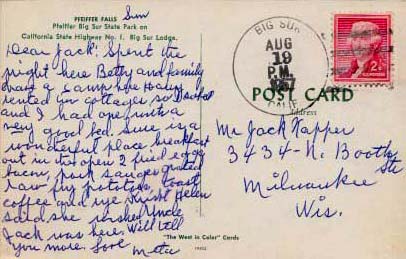 PFEIFFER FALLS Sun
Pfeiffer Big Sur State Park on
California State Highway No. 1. Big Sur Lodge.
Dear Jack: Spent the
night here Betty and family
have a camp here Harry
rented in cottages so I
and I had one with a
very good bed. Sure is a
wonderful place, breakfast
out in the open 2 fried eggs
bacon, pork sausages
raw fry potatoes, toast
coffee and rye Helen
said she wished Uncle
Jack was here. Will tell
you more. Love
"The West in Color" Cards
BIG SUR
AUG
19
P.M.
CALIF.
2¢
POST CARD
Address
Mr Jack Kapper
3434-N. Booth
Str
Milwaukee
Wis.